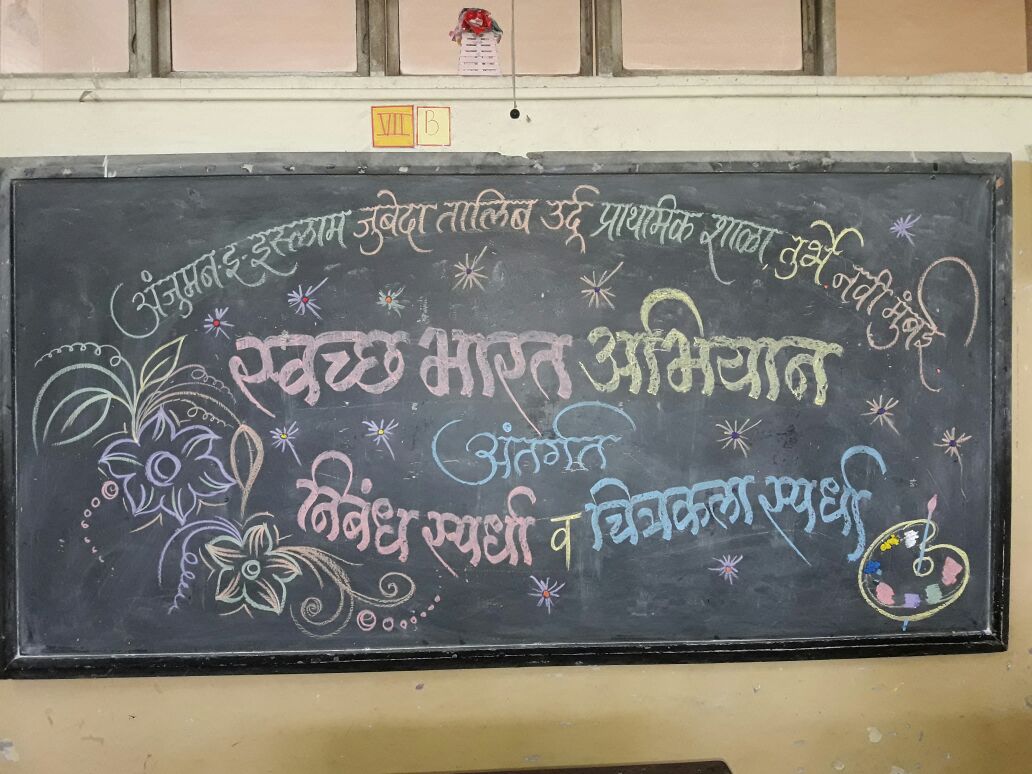 VII B
अंजुमन-इ-इस्लाम जुबेदा तालिब उर्दू प्राथमिक शाळा, तुर्भे. नवी मुंबई
स्वच्छ भारत अभियान
अंतर्गत
निबंध स्पर्धा व चित्रकला स्पर्धा